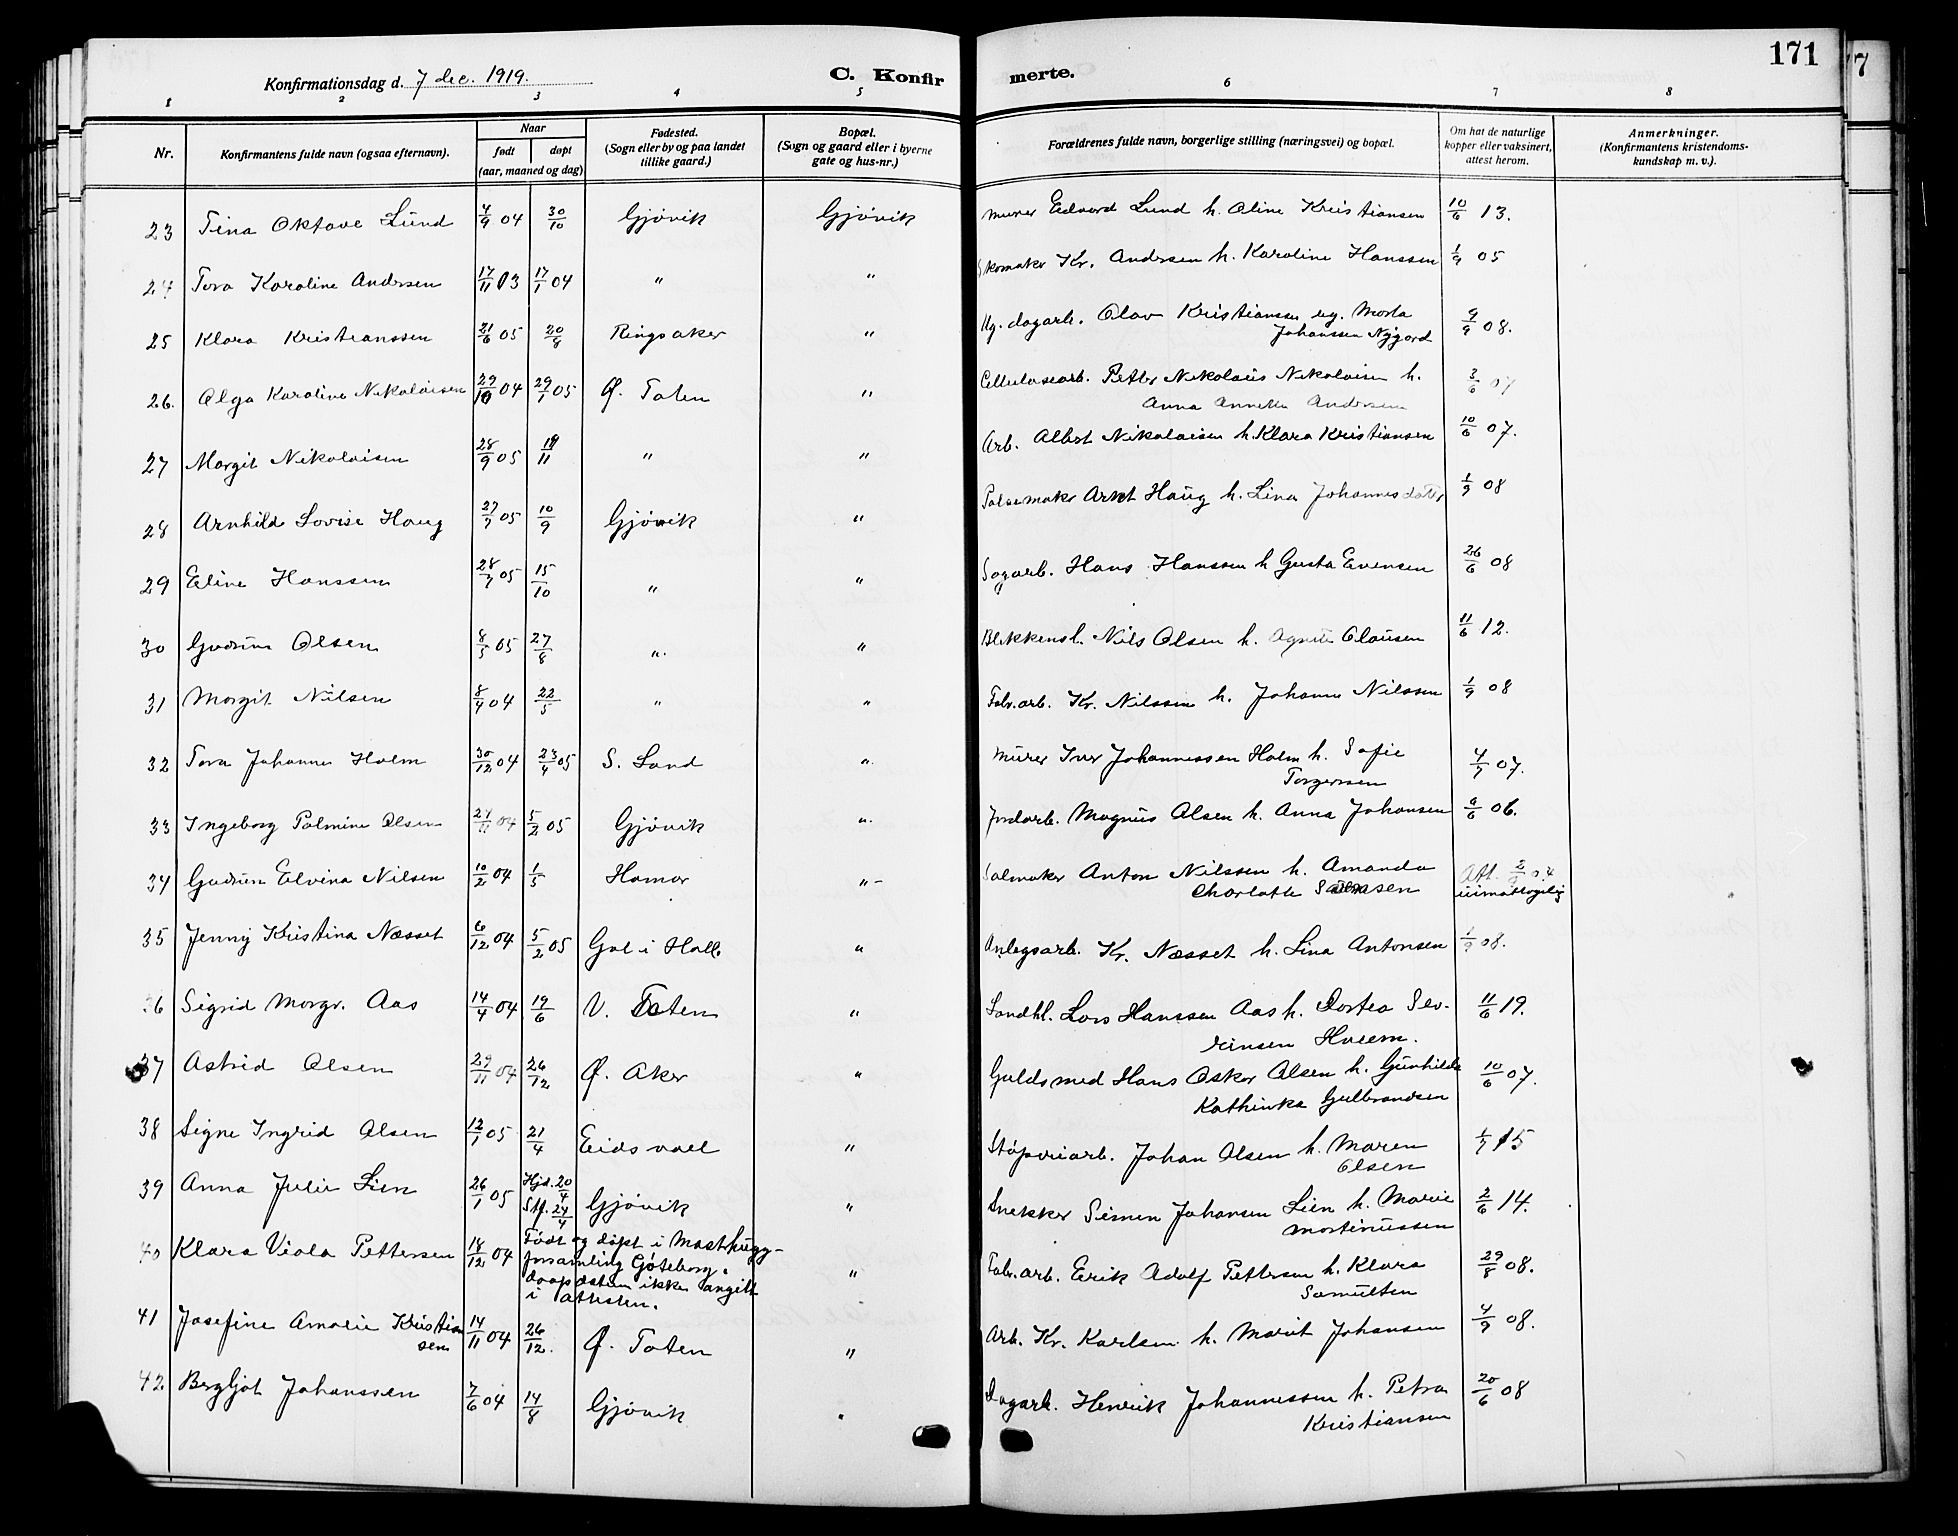 171
Konfirmationsdag d. 7 dec. 1919.
C. Konfirmerte.
1 2 3 4 5 6 7 8
Nr. Konfirmantens fulde navn (ogsaa efternavn). Naar født døpt (aar, maaned og dag) Fødested. (Sogn eller by og paa landet tillike gaard.) Bopæl. (Sogn og gaard eller i byerne gate og hus-nr.) Forældrenes fulde navn, borgerlige stilling (næringsvei) og bopæl. Om hat de naturlige kopper eller vaksinert, attest herom. Anmerkninger. (Konfirmantens kristendomskundskap m. v.).
23 Tina Oktave Lund 4/9 04 30/10 Gjövik Gjövik Murer Edvard Lund h. Oline Kristiansen 10/6 13.
24 Tora Karoline Andersen 17/11 03 17/1 04 " " Skomaker Kr. Andersen h. Karoline Hanssen 1/9 05
25 Klara Kristianssen 21/6 05 20/8 Ringsaker " Ug. dagarb. Olav Kristianssen ug. Marta
Johanssen Nygord 9/9 08.
26. Olga Karoline Nikolaisen 29/10 04 29/1 05 Ø. Toten " Cellulosearb. Petter Nikolaus Nikolaisen h.
Anna Annette Andersen 3/6 07
27 Margit Nikolaisen 28/9 05 19/11 " " Arb. Albert Nikolaisen h. Klara Kristiansen 10/6 07.
28 Arnhild Lovise Haug 27/7 05 10/9 Gjövik " Pølsemaker Arnt Haug h. Lina Johannesdatter 1/9 08
29 Eline Hanssen 28/7 05 15/10 " " Sagarb. Hans Hanssen h Gusta Evensen 26/6 08
30 Gudrun Olsen 8/5 05 27/8 " " Blikkensl. Nils Olsen h. Agnete Clausen 11/6 12.
31 Margit Nilsen 8/4 04 22/5 " " Fabr.arb. Kr. Nilssen h. Johanne Nilssen 1/9 08
32 Tora Johanne Holm 30/12 04 23/4 05 S. Land " Murer Iver Johannessen Holm h. Sofie
Torgerssen 4/7 07.
33 Ingeborg Palmine Olsen 24/11 04 5/2 05 Gjövik " Jordarb. Magnus Olsen h. Anna Johansen 9/6 06.
34 Gudrun Elvina Nilsen 10/2 04 1/5 Hamar " - Salmaker Anton Nilssen h. Amanda
Charlotte Att. 2/9 04
35 Jenny Kristina Næsset 6/12 04 5/2 05 Gol i Hall. " Anlegsarb. Kr. Næsset h. Lina Antonsen 1/9 08.
36 Sigrid Margr. Aas 14/4 04 19/6 V. Toten " Landhl. Lars Hanssen Aas h. Dortea Sev-
rinsen Hveem. 11/6 19.
37 Astrid Olsen 29/11 04 26/12 Ø. Aker " Guldsmed Hans Oskar Olsen h. Gunhilda
Kathinka Gulbrandsen 10/6 07.
38 Signe Ingrid Olsen 12/1 05 21/4 Eidsvoll " Støperiarb. Johan Olsen h. Maren
Olsen 1/7 15
39 Anna Julie Lien 26/1 05 Hjd. 20/4 Stf. 24/4 Gjövik " Snekker Simen Johansen Lien h. Marie
Mortinussen 2/6 14.
40 Klara Viola Pettersen 18/12 04 Født og døpt i Masthugg-
forsamling Göteborg.
daapdatum ikke angitt
i attesten. " Fabr.arb. Erik Adolf Pettersen h. Klara
Samuelsen 29/8 08.
41 Josefine Amalie Kristian
sen 14/11 04 26/12. Ø. Toten " Arb. Kr. Karlsen h. Marit Johansen 4/9 08.
42 Bergljot Johanssen 7/6 04 14/8 Gjövik " Dagarb. Henrik Johannessen h. Petra
Kristiansen 20/6 08